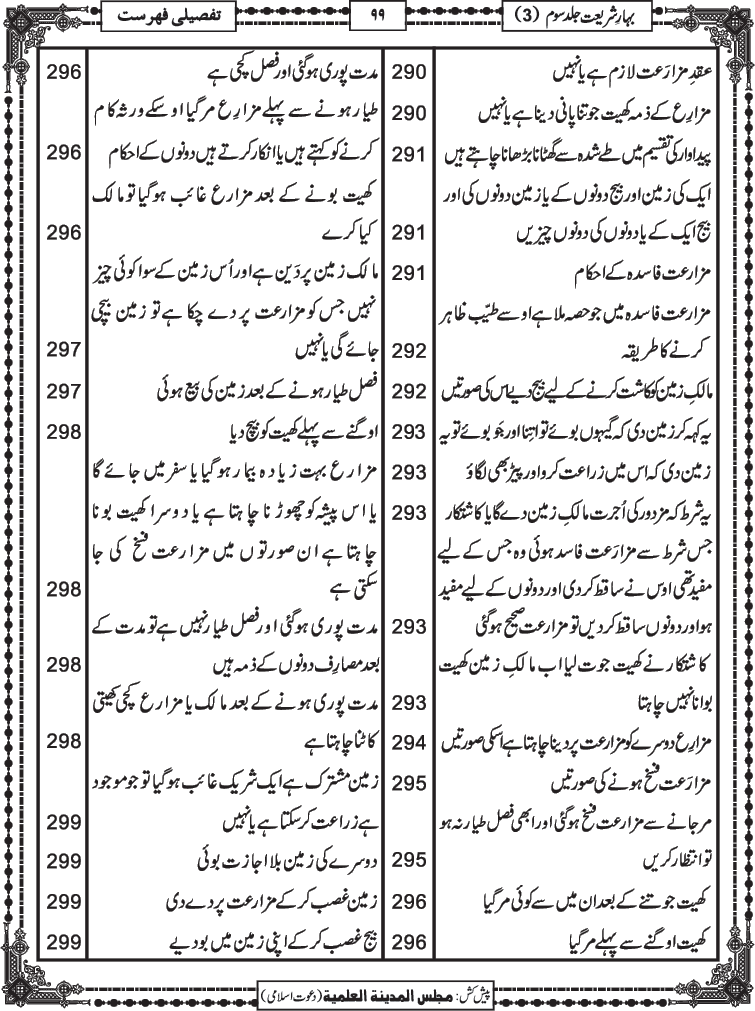 بہارِ شریعت جلد سوم (3)
۹۹
تفصیلی فہرست
عقدِ مزارَعت لازم ہے یا نہیں 290
مزارِع کے ذمہ کھیت جوتنا پانی دینا ہے یا نہیں 290
پیداوار کی تقسیم میں طے شدہ سے گھٹانا بڑھانا چاہتے ہیں 291
ایک کی زمین اور بیج دونوں کے یا زمین دونوں کی اور
بیج ایک کے یا دونوں کی دونوں چیزیں 291
مزارعت فاسدہ کے احکام 291
مزارعت فاسدہ میں جو حصہ ملا ہے اوسے طیّب ظاہر
کرنے کا طریقہ 292
مالکِ زمین کو کاشت کرنے کے لیے بیج دیے اس کی صورتیں 292
یہ کہہ کر زمین دی کہ گیہوں بوئے تو اتنا اور جَو بوئے تو یہ 293
زمین دی کہ اس میں زراعت کرو اور پیڑ بھی لگاؤ 293
یہ شرط کہ مزدور کی اُجرت مالکِ زمین دے گا یا کاشتکار 293
جس شرط سے مزارَعت فاسد ہوئی وہ جس کے لیے
مفید تھی اوس نے ساقط کردی اور دونوں کے لیے مفید
ہو اور دونوں ساقط کردیں تو مزارعت صحیح ہوگئی 293
کاشتکار نے کھیت جوت لیا اب مالکِ زمین کھیت
بوانا نہیں چاہتا 293
مزارِع دوسرے کو مزارعت پر دینا چاہتا ہے اسکی صورتیں 294
مزارَعت فسخ ہونے کی صورتیں 295
مرجانے سے مزارعت فسخ ہوگئی اور ابھی فصل طیار نہ ہو
تو انتظار کریں 295
کھیت جوتنے کے بعد ان میں سے کوئی مرگیا 296
کھیت اوگنے سے پہلے مرگیا 296
مدت پوری ہوگئی اور فصل کچی ہے 296
طیار ہونے سے پہلے مزارِع مرگیا اوسکے ورثہ کام
کرنے کو کہتے ہیں یا انکار کرتے ہیں دونوں کے احکام 296
کھیت بونے کے بعد مزارع غائب ہوگیا تو مالک
کیا کرے 296
مالک زمین پر دَین ہے اور اُس زمین کے سوا کوئی چیز
نہیں جس کو مزارعت پر دے چکا ہے تو زمین بیچی
جائے گی یا نہیں 297
فصل طیار ہونے کے بعد زمین کی بیع ہوئی 297
اوگنے سے پہلے کھیت کو بیچ دیا 298
مزارع بہت زیادہ بیمار ہوگیا یا سفر میں جائے گا
یا اس پیشہ کو چھوڑنا چاہتا ہے یا دوسرا کھیت بونا
چاہتا ہے ان صورتوں میں مزارعت فسخ کی جا
سکتی ہے 298
مدت پوری ہوگئی اور فصل طیار نہیں ہے تو مدت کے
بعد مصارِف دونوں کے ذمہ ہیں 298
مدت پوری ہونے کے بعد مالک یا مزارع کچی کھیتی
کاٹنا چاہتا ہے 298
زمین مشترک ہے ایک شریک غائب ہوگیا تو جو موجود
ہے زراعت کرسکتا ہے یا نہیں 299
دوسرے کی زمین بلا اجازت بوئی 299
زمین غصب کرکے مزارعت پر دے دی 299
بیج غصب کرکے اپنی زمین میں بودیے 299
پیش کش: مجلس المدینة العلمیة (دعوتِ اسلامی)